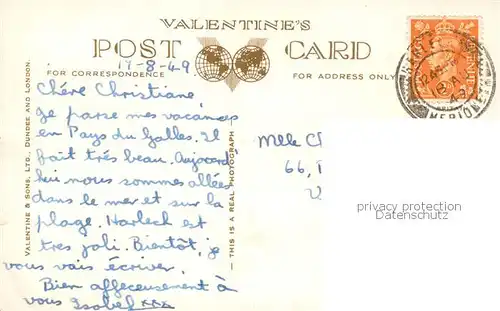 VALENTINE'S
POST CARD
17-8-49
FOR CORRESPONDENCE
FOR ADDRESS ONLY
Chère Christiane,
je passe mes vacances
en Pays du Galles. Il
fait très beau. Aujourd'
hui nous sommes allées
dans le mer et sur la
plage. Harlech est
tres joli. Bientôt, je
vous vais écriver.
Bien affeceusement à
vous Isobel xxx
VALENTINE & SONS, LTD., DUNDEE AND LONDON.
— THIS IS A REAL PHOTOGRAPH
Melle C
66,
privacy protection
Datenschutz
MERIONE